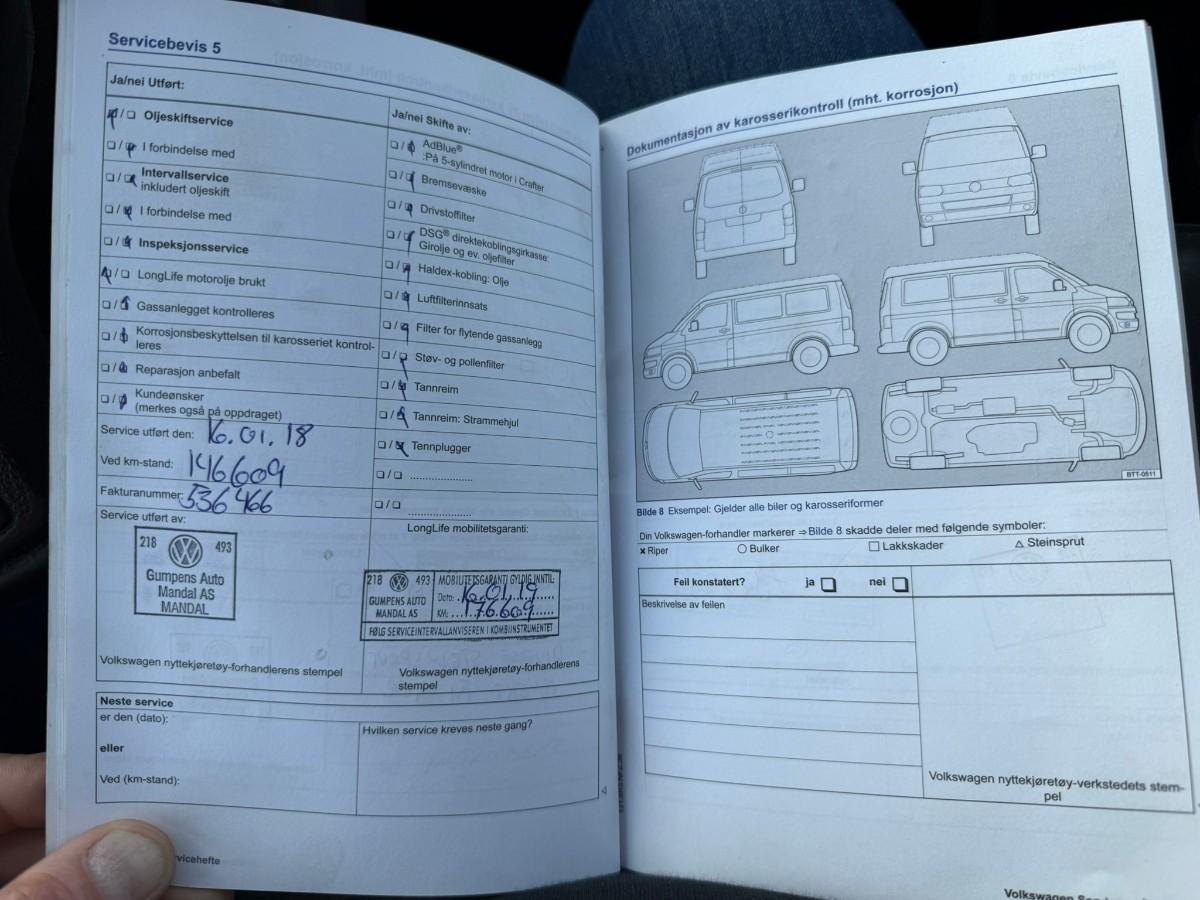 Servicebevis 5
Ja/nei Utført:
❏/❏ Oljeskiftservice
❏/❏ I forbindelse med
❏/❏ Intervallservice
inkludert oljeskift
❏/❏ I forbindelse med
❏/❏ Inspeksjonsservice
❏/❏ LongLife motorolje brukt
❏/❏ Gassanlegget kontrolleres
❏/❏ Korrosjonsbeskyttelsen til karosseriet kontrol-
leres
❏/❏ Reparasjon anbefalt
❏/❏ Kundeønsker
(merkes også på oppdraget)
Service utført den: 16.01.18
Ved km-stand: 146609
Fakturanummer: 536466
Service utført av:
218 493
Gumpens Auto
Mandal AS
MANDAL
Volkswagen nyttekjøretøy-forhandlerens stempel
Ja/nei Skifte av:
❏/❏ AdBlue®
:På 5-sylindret motor i Crafter
❏/❏ Bremsevæske
❏/❏ Drivstoffilter
❏/❏ DSG® direktekoblingsgirkasse:
Girolje og ev. oljefilter
❏/❏ Haldex-kobling: Olje
❏/❏ Luftfilterinnsats
❏/❏ Filter for flytende gassanlegg
❏/❏ Støv- og pollenfilter
❏/❏ Tannreim
❏/❏ Tannreim: Strammehjul
❏/❏ Tennplugger
❏/❏ ......................
❏/❏ ......................
LongLife mobilitetsgaranti:
218 493
GUMPENS AUTO
MANDAL AS
MOBILITETSGARANTI GYLDIG INNTIL:
Dato: 16.01.19
KM: 176.609
FØLG SERVICEINTERVALLANVISEREN I KOMBIINSTRUMENTET
Volkswagen nyttekjøretøy-forhandlerens
stempel
Neste service
er den (dato):
eller
Ved (km-stand):
Hvilken service kreves neste gang?
rvicehefte
Dokumentasjon av karosserikontroll (mht. korrosjon)
BTT-0511
Bilde 8 Eksempel: Gjelder alle biler og karosseriformer
Din Volkswagen-forhandler markerer ⇒ Bilde 8 skadde deler med følgende symboler:
× Riper ○ Bulker □ Lakkskader △ Steinsprut
Feil konstatert? ja ❏ nei ❏
Beskrivelse av feilen
Volkswagen nyttekjøretøy-verkstedets stem-
pel
Volkswagen